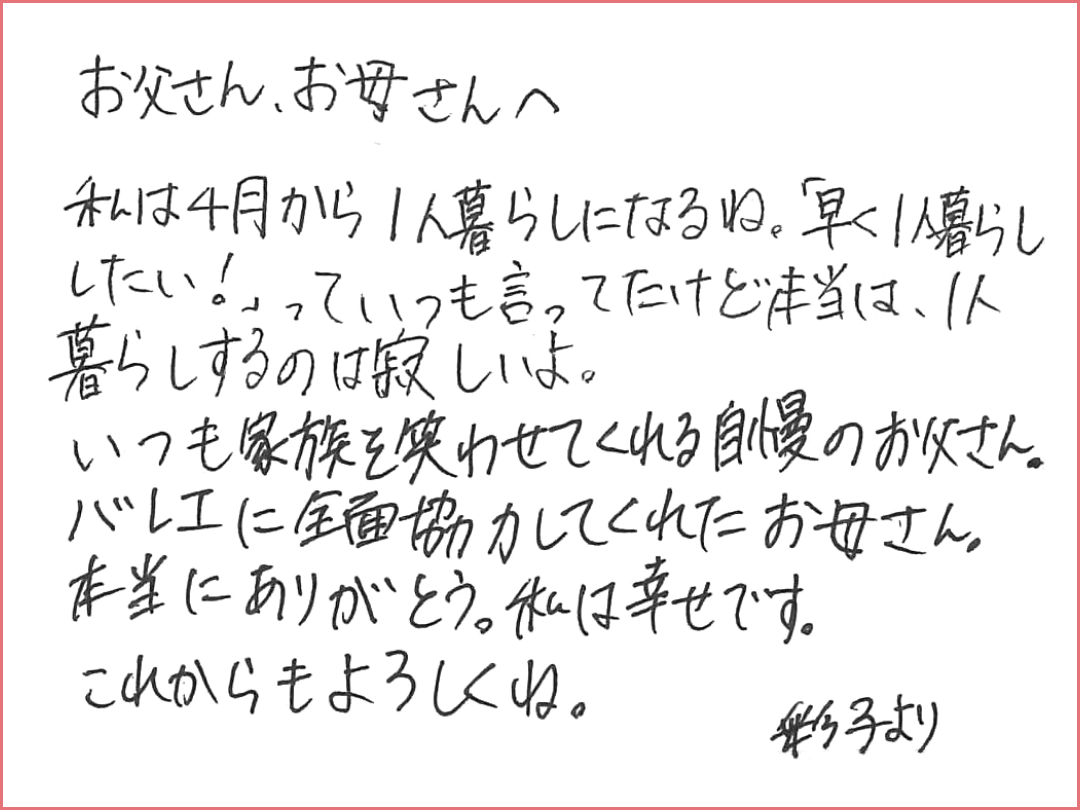 お父さん、お母さんへ
私は4月から1人暮らしになるね。「早く1人暮らし
したい!」っていつも言ってたけど本当は、1人
暮らしするのは寂しいよ。
いつも家族を笑わせてくれる自慢のお父さん。
バレエに全面協力してくれたお母さん。
本当にありがとう。私は幸せです。
これからもよろしくね。
彩子より